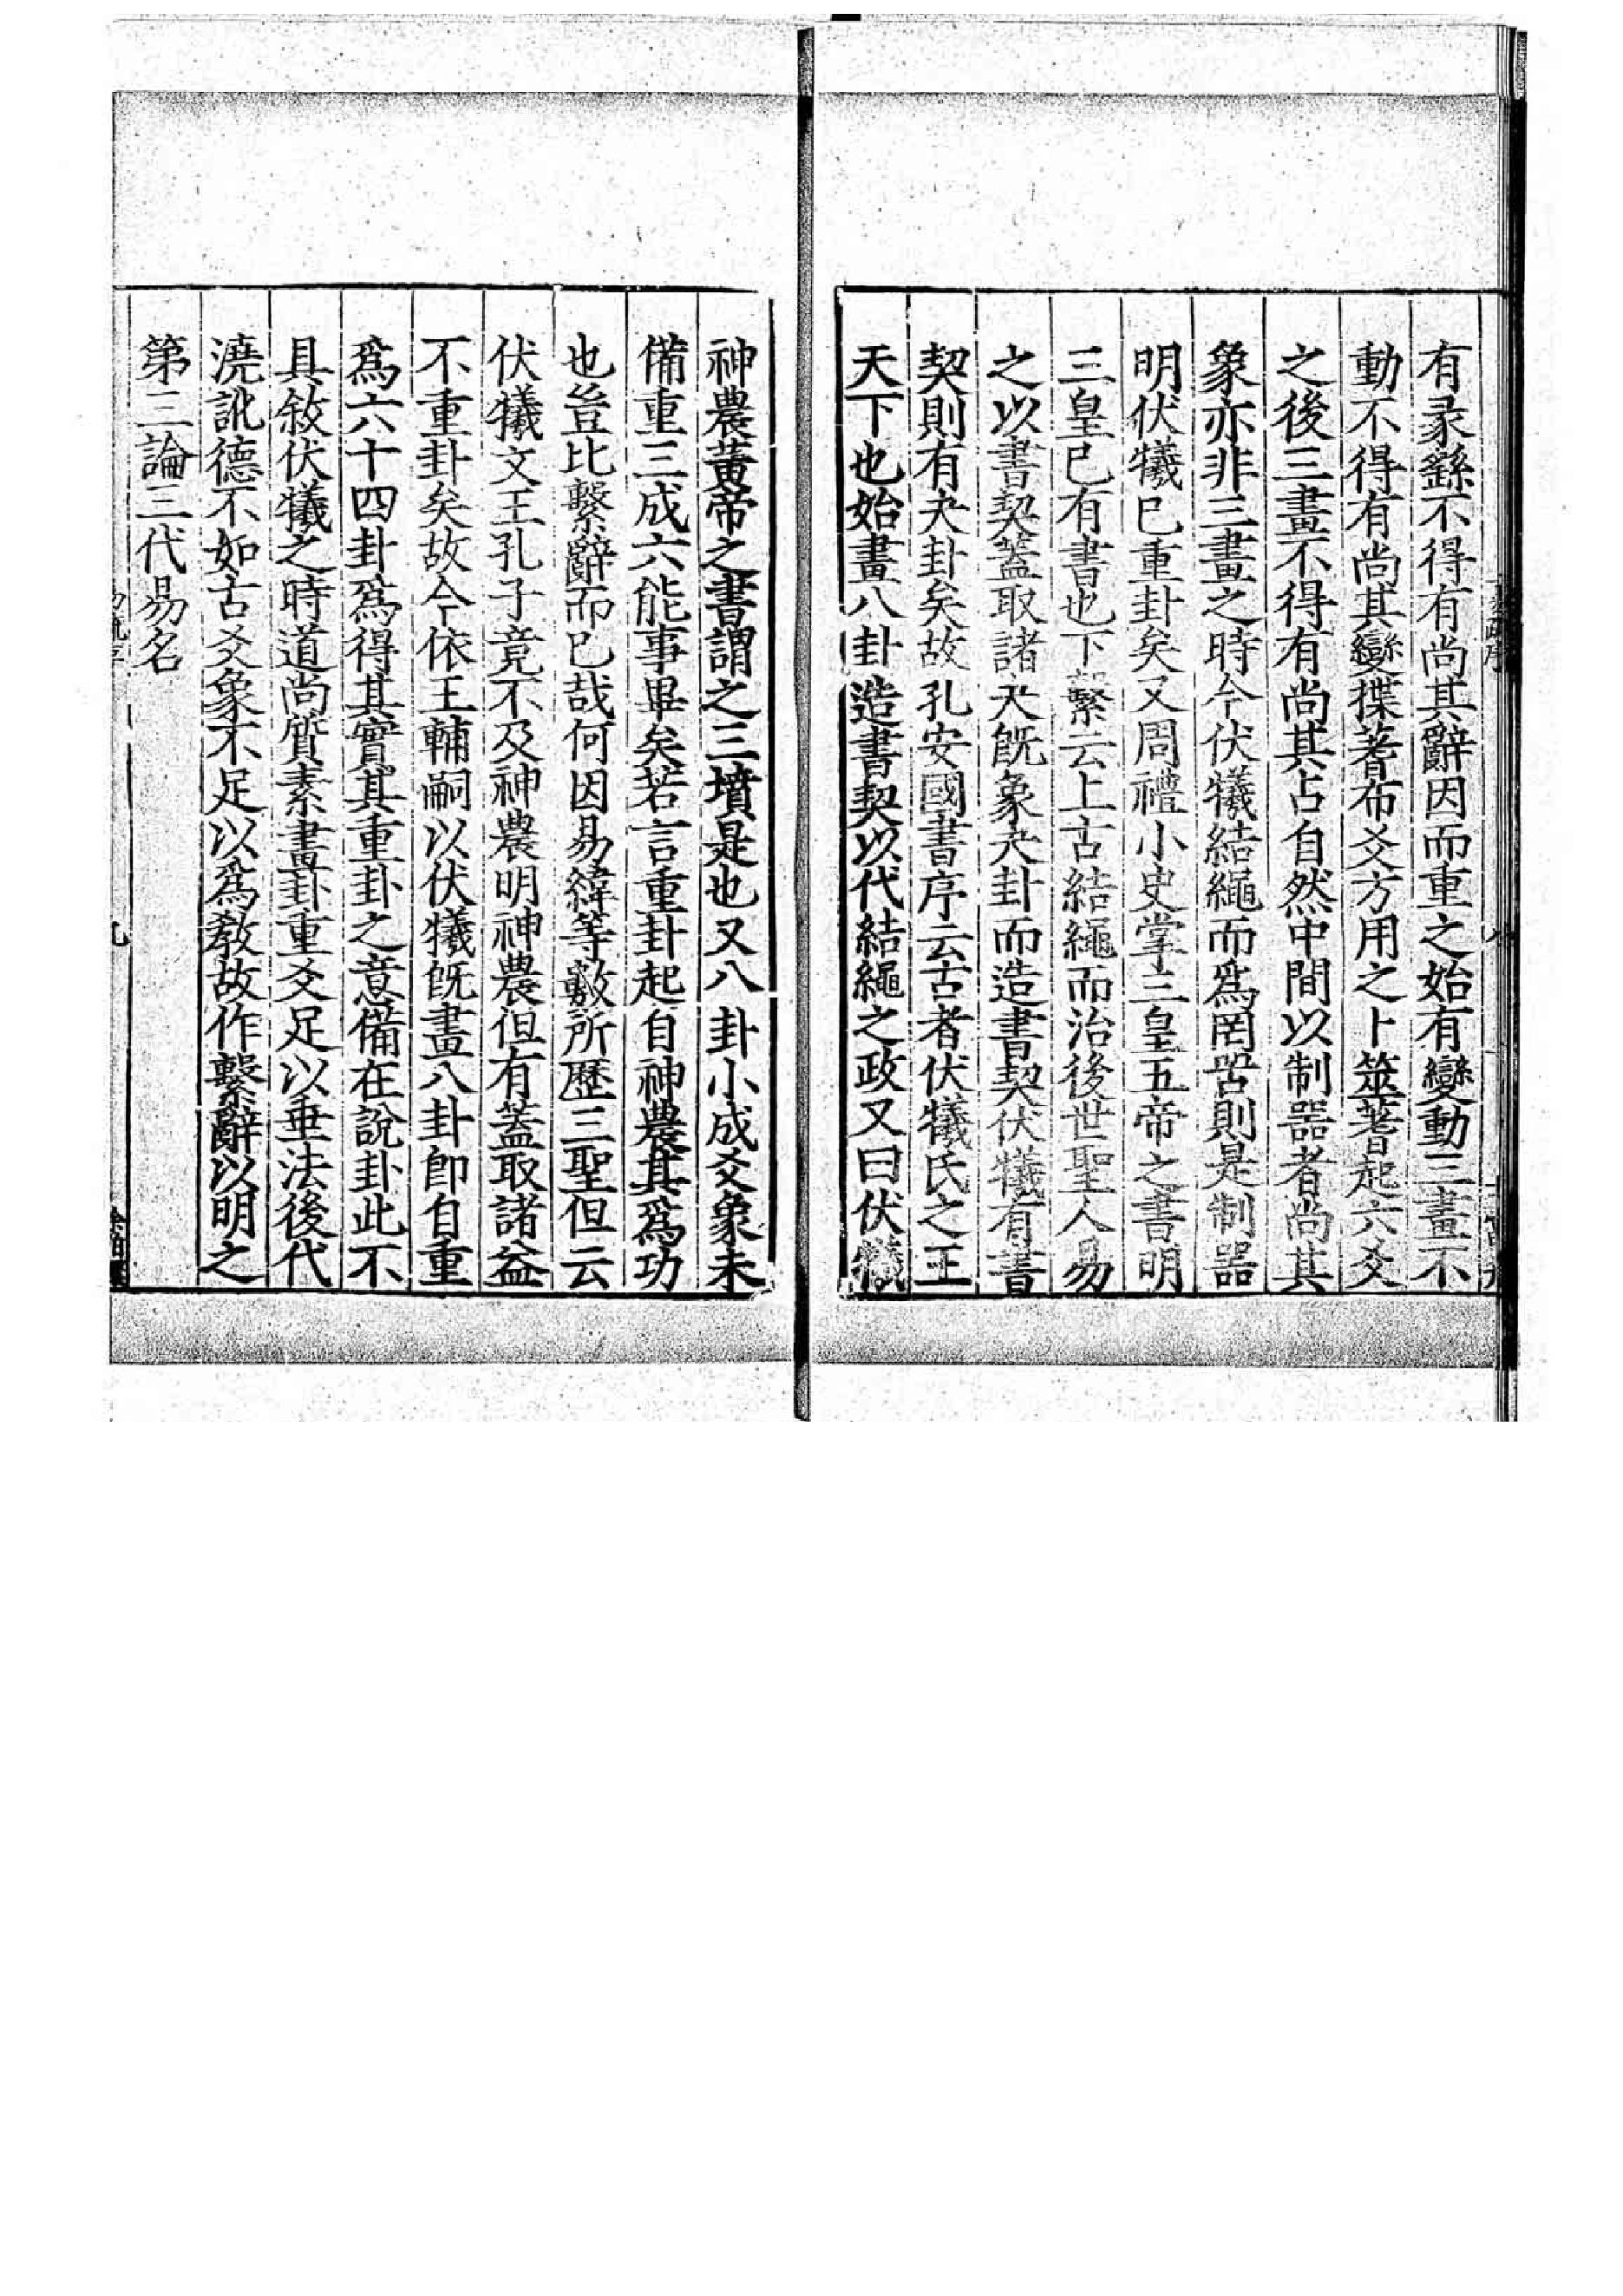 有彖繇不得有尚其辭因而重之始有變動三畫不
動不得有尚其變揲蓍布爻方用之卜筮蓍起六爻
之後三畫不得有尚其占自然中間以制器者尚其
象亦非三畫之時今伏犧結繩而爲罔罟則是制器
明伏犧已重卦矣又周禮小史掌三皇五帝之書明
三皇已有書也下繫云上古結繩而治後世聖人易
之以書契蓋取諸夬既象夬卦而造書契伏犧有書
契則有夬卦矣故孔安國書序云古者伏犧氏之王
天下也始畫八卦造書契以代結繩之政又曰伏犧
神農黃帝之書謂之三墳是也又八卦小成爻象未
備重三成六能事畢矣若言重卦起自神農其爲功
也豈比繫辭而已哉何因易緯等數所歷三聖但云
伏犧文王孔子竟不及神農明神農但有蓋取諸益
不重卦矣故今依王輔嗣以伏犧既畫八卦即自重
爲六十四卦爲得其實其重卦之意備在說卦此不
具敘伏犧之時道尚質素畫卦重爻足以垂法後代
澆訛德不如古爻象不足以爲教故作繫辭以明之
第三論三代易名